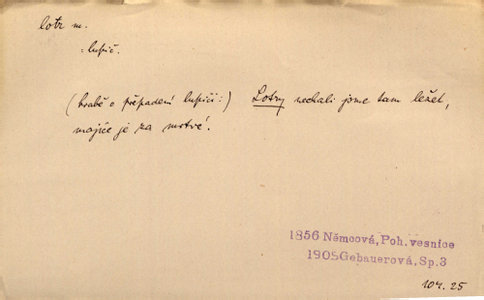 lotr m.
: lupič.
(hrabě o přepadení lupiči:) Lotry nechali jsme tam ležet,
majíce je za mrtvé.
1856 Němcová, Poh. vesnice
1905 Gebauerová, Sp.3
104. 25